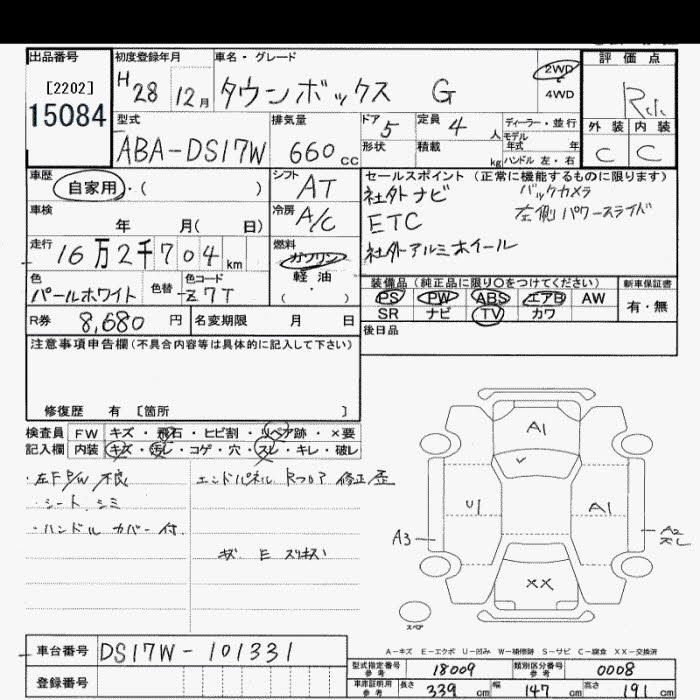 出品番号
[2202]
15084
初度登録年月
H 28 12月
車名・グレード
タウンボックス G
2WD
4WD
評価点
外装 内装
C C
型式
ABA-DS17W
排気量
660cc
ドア 5
形状
定員 4人
積載 kg
ディーラー・並行
モデル年式 年
ハンドル 左・右
車歴
自家用・( )
シフト
AT
車検
年 月( 日)
冷房
A/C
走行
16万2千704km
燃料
ガソリン
軽油
( ・ )
色
パールホワイト
色替
色コード
Z7T
R券 8,680円
名変期限 月 日
セールスポイント (正常に機能するものに限ります)
社外ナビ バックカメラ
ETC 左側パワースライド
社外アルミホイール
装備品 (純正品に限り○をつけてください)
新車保証書
PS PW ABS エアB AW
有・無
SR ナビ TV カワ
後日品
注意事項申告欄 (不具合内容等は具体的に記入して下さい)
修復歴 有 [箇所 ]
検査員 FW キズ・飛石・ヒビ割・リペア跡・×要
記入欄 内装 キズ・汚レ・コゲ・穴・スレ・キレ・破レ
・左F P/W 不良
・シート シミ
・ハンドル カバー付
エンドパネル Rフロア 修正歪
A1
U1
A1
A3
A2
XX
スペア
A-キズ E-エクボ U-凹み W-補修跡 S-サビ C-腐食 XX-交換済
車台番号 DS17W-101331
登録番号
型式指定番号 参考 18009
類別区分番号 参考 0008
車庫証明用 参考 長さ 339cm 幅 147cm 高さ 191cm